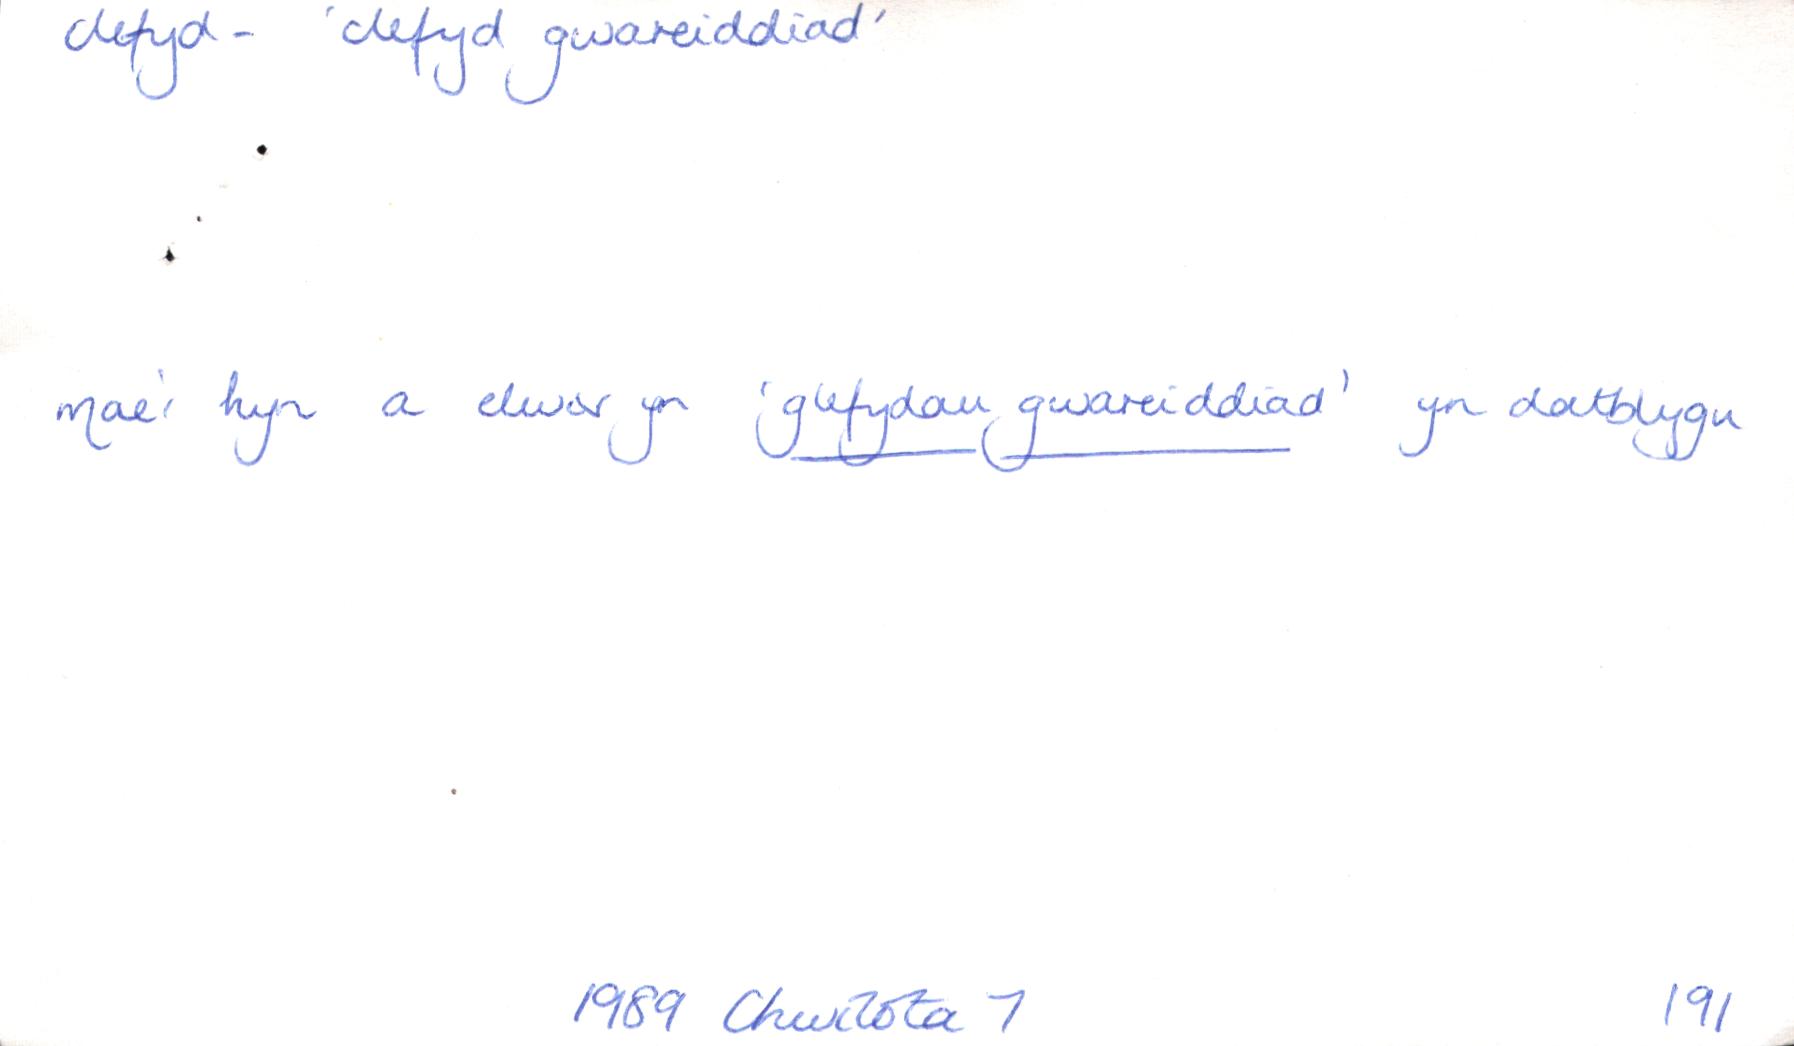 clefyd - 'clefyd gwareiddiad'
mae'r hyn a elwir yn 'glefydau gwareiddiad' yn datblygu
1989 Chwilota 7 191